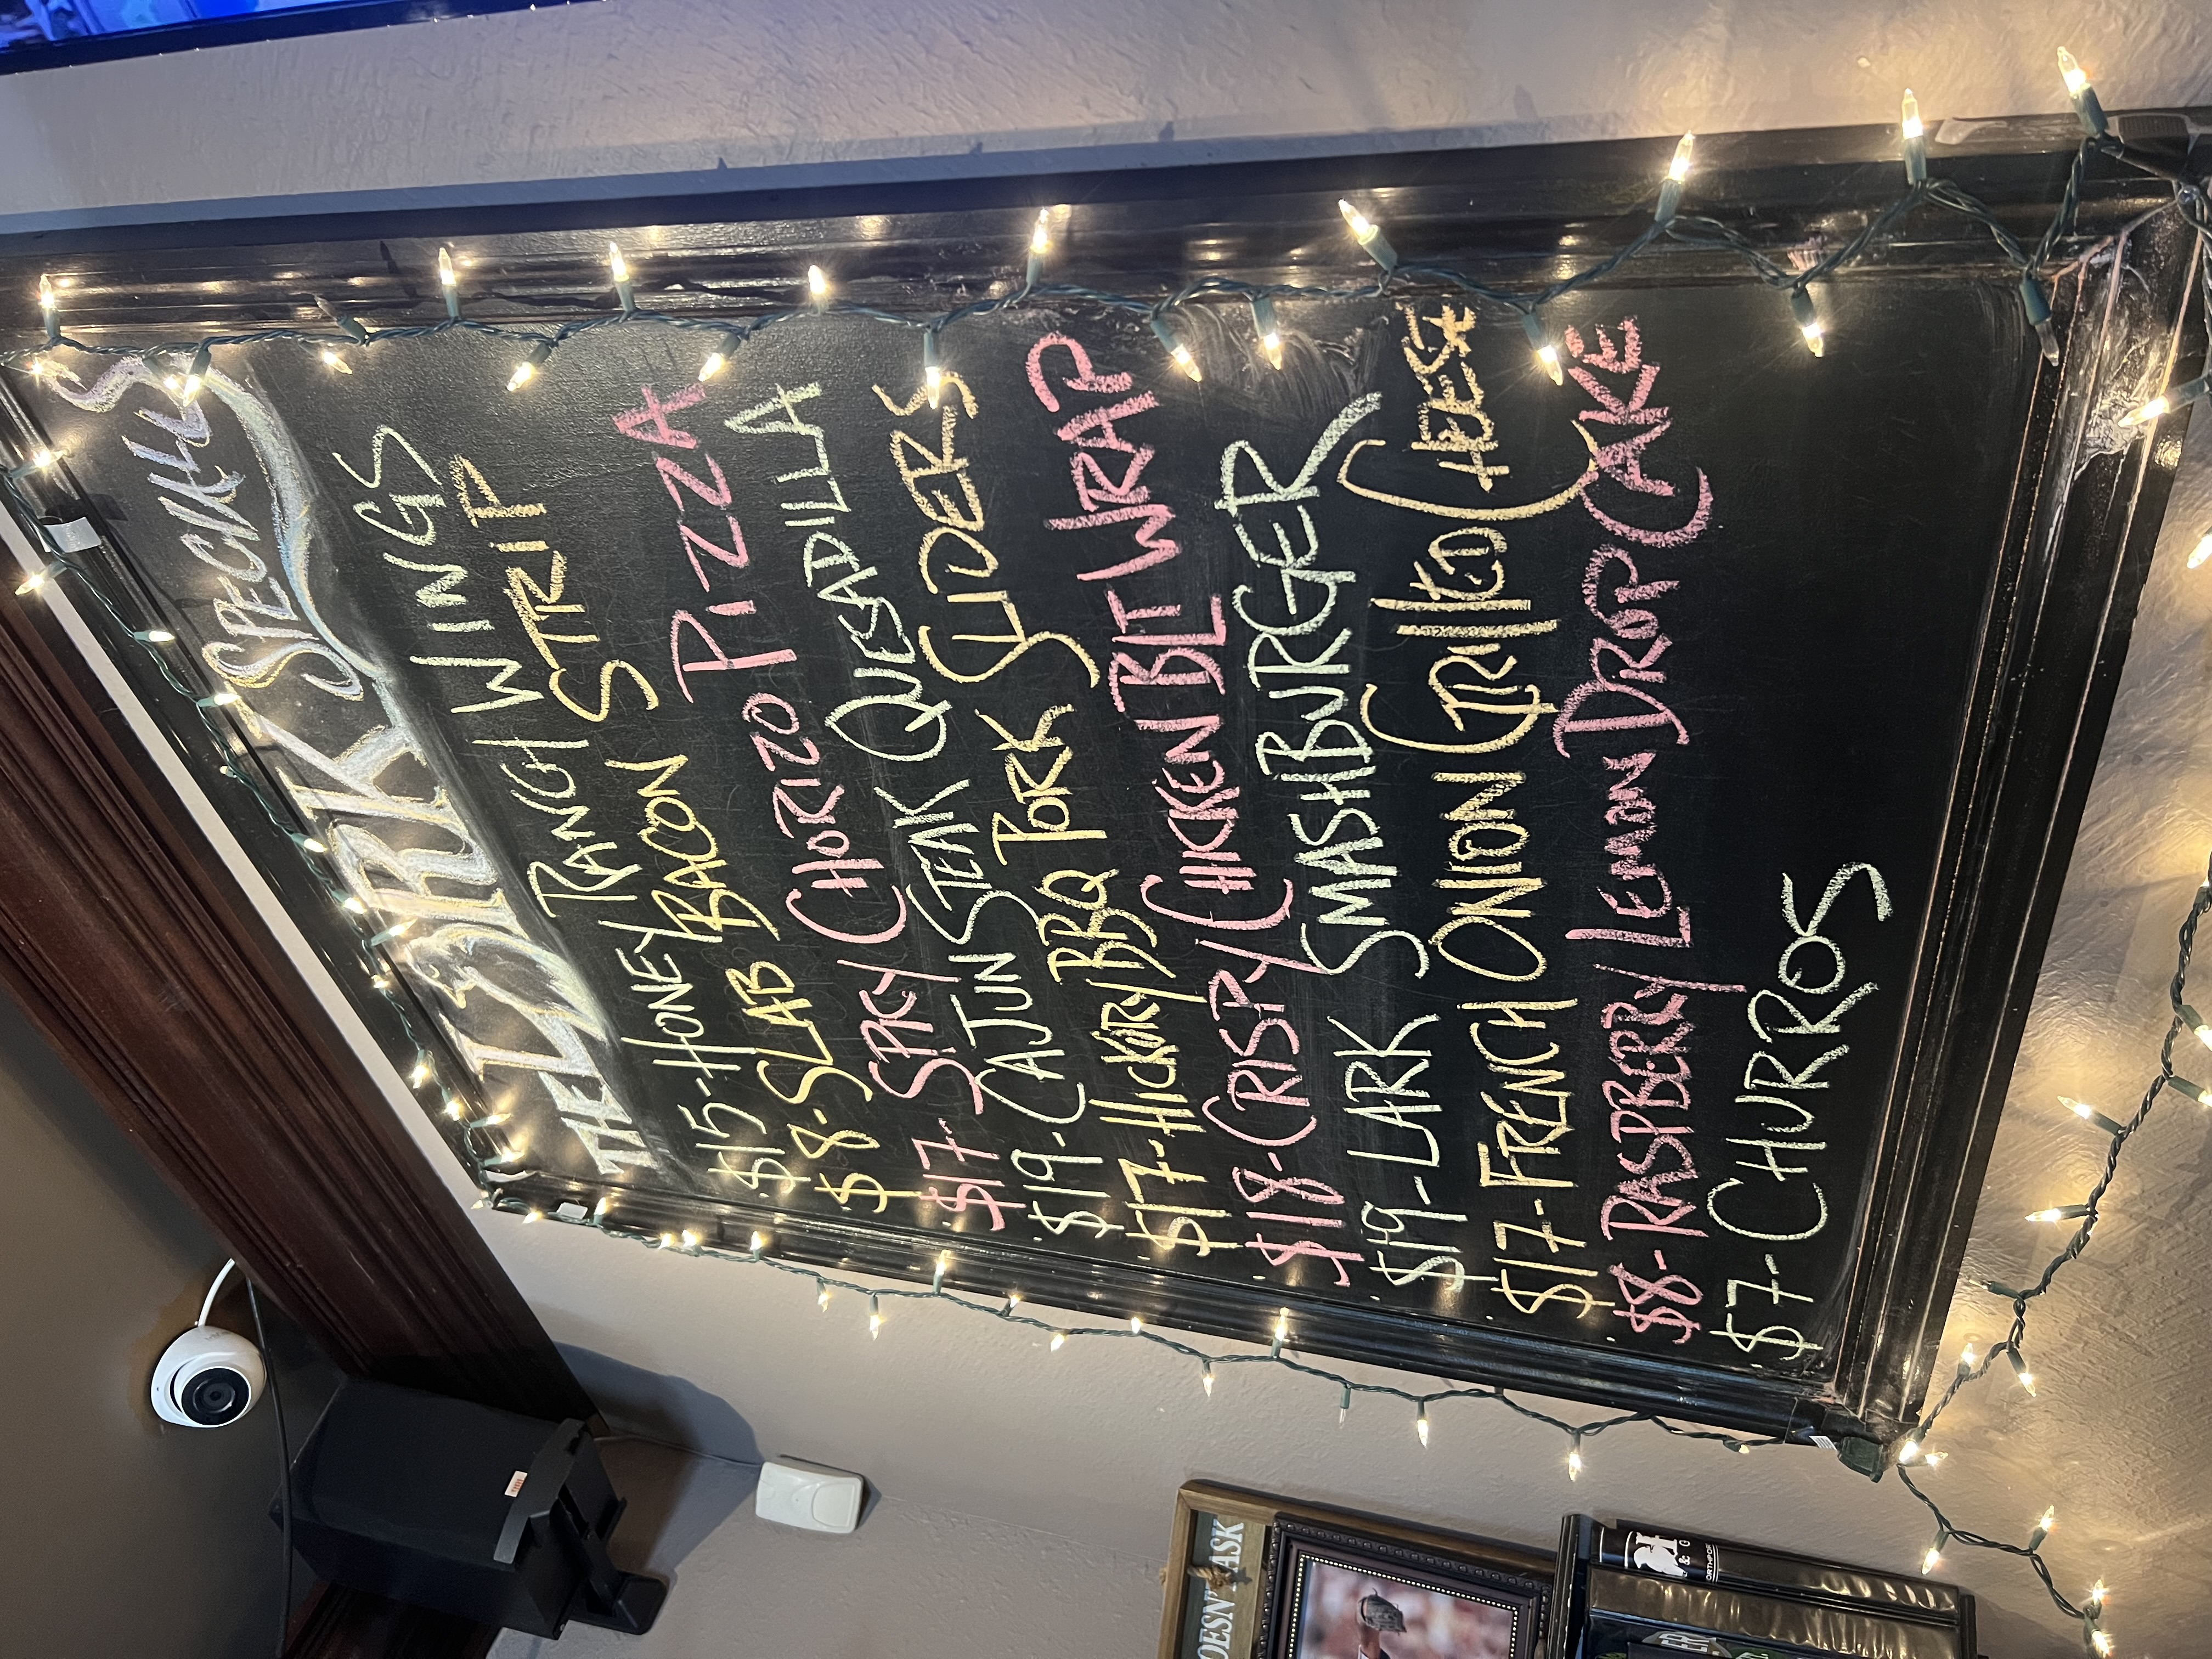 THE LARK SPECIALS
$15-HONEY RANCH WINGS
$8-SLAB BACON STRIP
$17-SPICY CHORIZO PIZZA
$19-CAJUN STEAK QUESADILLA
$17-HICKORY BBQ PORK SLIDERS
$18-CRISPY CHICKEN BLT WRAP
$19-LARK SMASHBURGER
$17-FRENCH ONION GRILLED CHEESE
$8-RASPBERRY LEMON DROP CAKE
$7-CHURROS
DOESN'T ASK